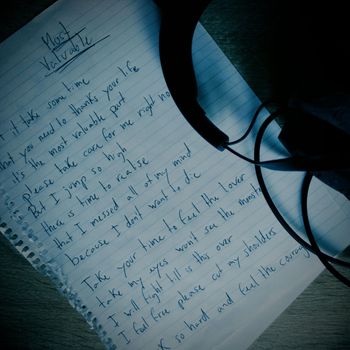 Most
Valuable
it take some time
hat you need to thanks your life
it's the most valuable part
please take care for me right no
But I jump so high
there is time to realise
that I messed all of my mind
because I don't want to die
Take your time to feel the lover
take my eyes won't see the month
I will fight till is this over
I feel free please cut my shoulders
so hard and feel the courag